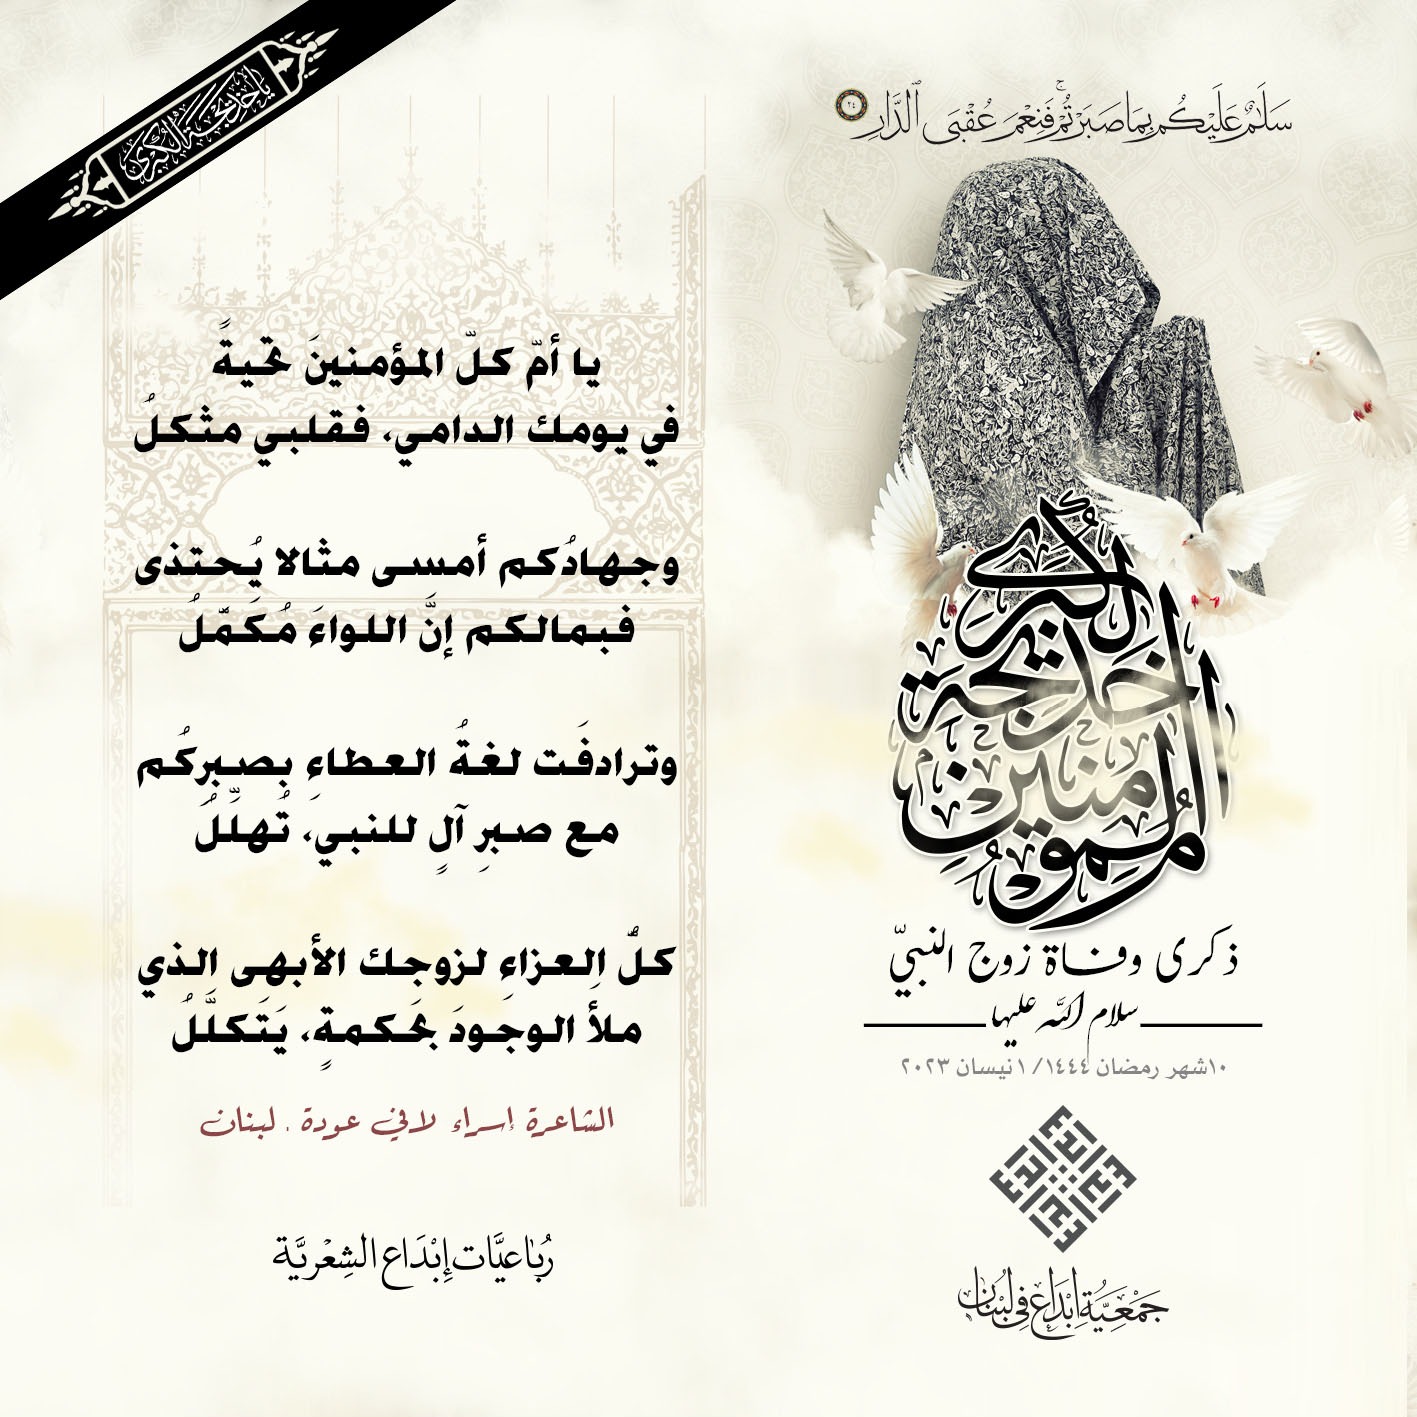 سَلَٰمٌ عَلَيْكُم بِمَا صَبَرْتُمْ ۚ فَنِعْمَ عُقْبَى ٱلدَّارِ ٢٤
يا خديجة الكبرى
أُمّ المؤمنين خديجة الكبرى
ذكرى وفاة زوج النبيّ
سلام الله عليها
١٠شهر رمضان ١٤٤٤/ ١نيسان ٢٠٢٣
جَمْعِيَّة إِبْدَاع في لبْنان
يا أمّ كلّ المؤمنينَ تحيةً
في يومك الدامي، فقلبي مثكلُ
وجهادُكم أمسى مثالا يُحتذى
فبمالكم إنَّ اللواءَ مُكَمَّلُ
وترادفَت لغةُ العطاءِ بِصبرِكُم
مع صبرِ آلٍ للنبي، تُهلِّلُ
كلُّ العزاءِ لزوجك الأبهى الذي
ملأَ الوجودَ بحكمةٍ، يَتَكلَّلُ
الشاعرة إسراء لافي عودة . لبنان
رُبَاعيَّات إِبْدَاع الشِعْريَّة